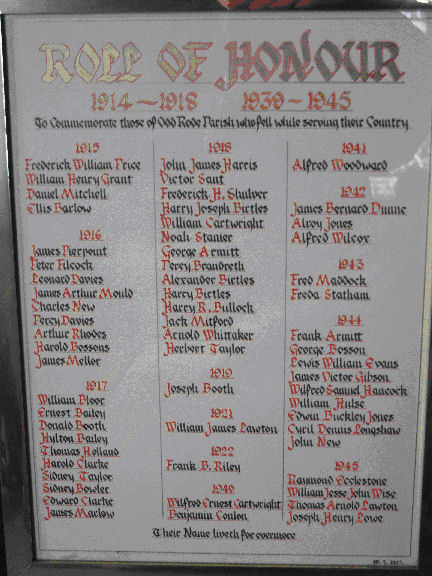 ROLL OF HONOUR
1914 – 1918 1939 – 1945
To Commemorate those of Odd Rode Parish who fell while serving their Country
1915
Frederick William Price
William Henry Grant
Daniel Mitchell
Ellis Barlow
1916
James Pierpoint
Peter Filcock
Leonard Davies
James Arthur Mould
Charles New
Percy Davies
Arthur Rhodes
Harold Bossons
James Mellor
1917
William Bloor
Ernest Bailey
Donald Booth
Hylton Bailey
Thomas Holland
Harold Clarke
Sidney Taylor
Sidney Bowler
Edward Clarke
James Marlow
1918
John James Harris
Victor Sant
Frederick H. Shulver
Harry Joseph Birtles
William Cartwright
Noah Stanier
George Armitt
Percy Brandreth
Alexander Birtles
Harry Birtles
Harry R. Bullock
Jack Mitford
Arnold Whittaker
Herbert Taylor
1919
Joseph Booth
1921
William James Lawton
1922
Frank B. Riley
1940
Wilfred Ernest Cartwright
Benjamin Conlon
1941
Alfred Woodward
1942
James Bernard Dunne
Alroy Jones
Alfred Wilcox
1943
Fred Maddock
Freda Statham
1944
Frank Armitt
George Bosson
Lewis William Evans
James Victor Gibson
Wilfred Samuel Hancock
William Hulse
Edwin Buckley Jones
Cyril Dennis Longshaw
John New
1945
Raymond Ecclestone
William Jesse John Wise
Thomas Arnold Lawton
Joseph Henry Lowe
Their Name liveth for evermore